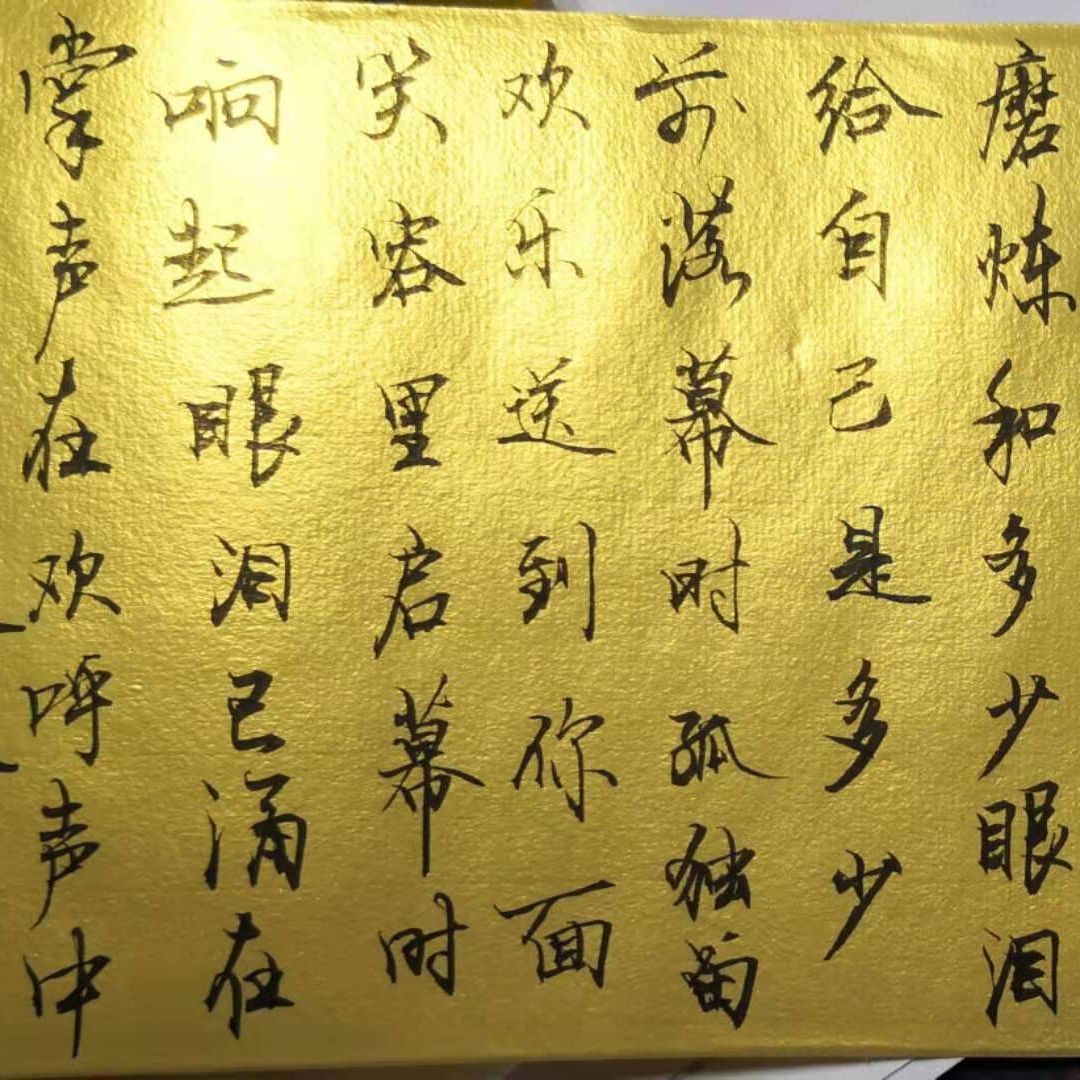 掌声在欢呼声中
响起眼泪已涌在
笑容里启幕时
欢乐送到你面
前落幕时孤独留
给自己是多少
磨炼和多少眼泪